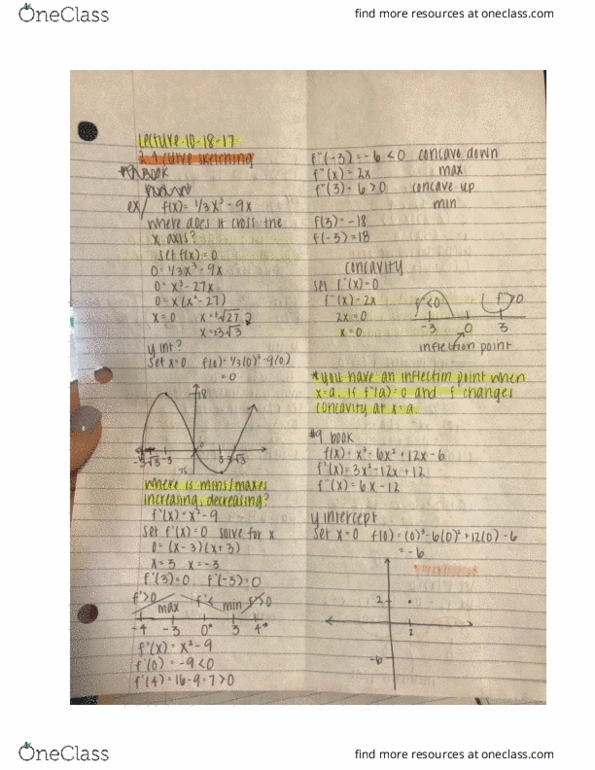 OneClass
find more resources at oneclass.com
Lecture 10-18-17
2.4 curve sketching
#9 BOOK
ex/ f(x) = 1/3x³ - 9x
where does it cross the
x axis?
set f(x)=0
0= 1/3x³-9x
0= x³-27x
0= x(x²-27)
x=0 x=±√27
x=±3√3
y int?
set x=0 f(0)= 1/3(0)³-9(0)
=0
18
-3√3 -3 0 3 3√3
where is mins/maxes
increasing, decreasing?
f'(x)= x²-9
set f'(x)=0 solve for x
0= (x-3)(x+3)
x=3 x=-3
f'(3)=0 f'(-3)=0
f'>0 f'< f'>0
max min
-4 -3 0 3 4
f'(x)= x²-9
f'(0)= -9<0
f'(4)=16-9=7>0
f"(-3)=-6<0 concave down
f"(x)=2x max
f"(3)=6>0 concave up
min
f(3)=-18
f(-3)=18
concavity
set f"(x)=0
f"(x)=2x
2x=0
x=0
f"<0 f">0
-3 0 3
inflection point
*you have an inflection point when
x=a. if f"(a)=0 and f changes
concavity at x=a.
#9 book
f(x)= x³-6x²+12x-6
f'(x)=3x²-12x+12
f"(x)=6x-12
y intercept
set x=0 f(0)=(0)³-6(0)²+12(0)-6
=-6
2
2
-6
OneClass
find more resources at oneclass.com